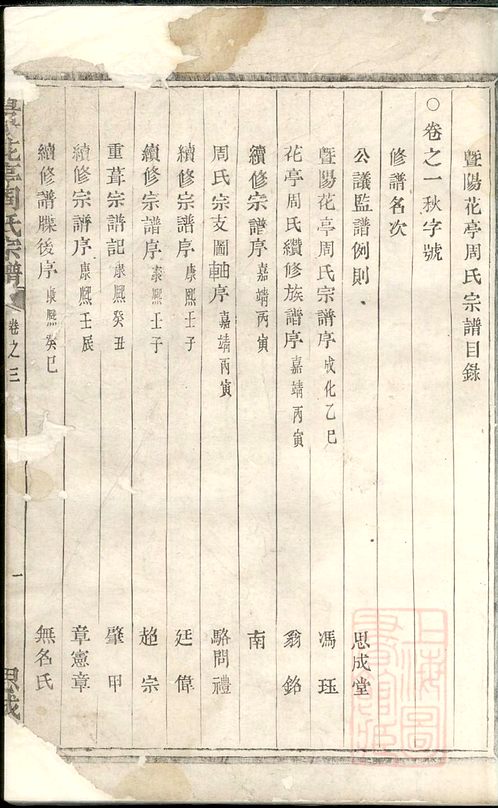 暨陽花亭周氏宗譜目錄
○卷之一秋字號
修譜名次
公議監譜例則、 思成堂
暨陽花亭周氏宗譜序 成化乙巳 馮珏
花亭周氏續修族譜序 嘉靖丙寅 翁銘
續修宗譜序 嘉靖丙寅 南
周氏宗支圖軸序 嘉靖丙寅 駱問禮
續修宗譜序 康熙壬子 廷偉
續修宗譜序 康熙壬子 趙宗
重葺宗譜記 康熙癸丑 肇甲
續修宗譜序 康熙壬辰 章憲章
續修譜牒後序 康熙癸巳 無名氏
花亭周氏宗譜 卷之三 一 思成
上海圖書館藏